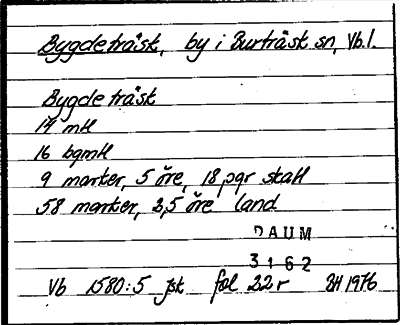 Bygdeträsk, by i Burträsk sn, Vb.l.
Bygdeträsk
14 mtl
16 bgmtl
9 marker, 5 öre, 18 pgr skatt
58 marker, 2,5 öre land
DAUM
3162
Vb 1580:5 jbk fol 22 r BH 1976